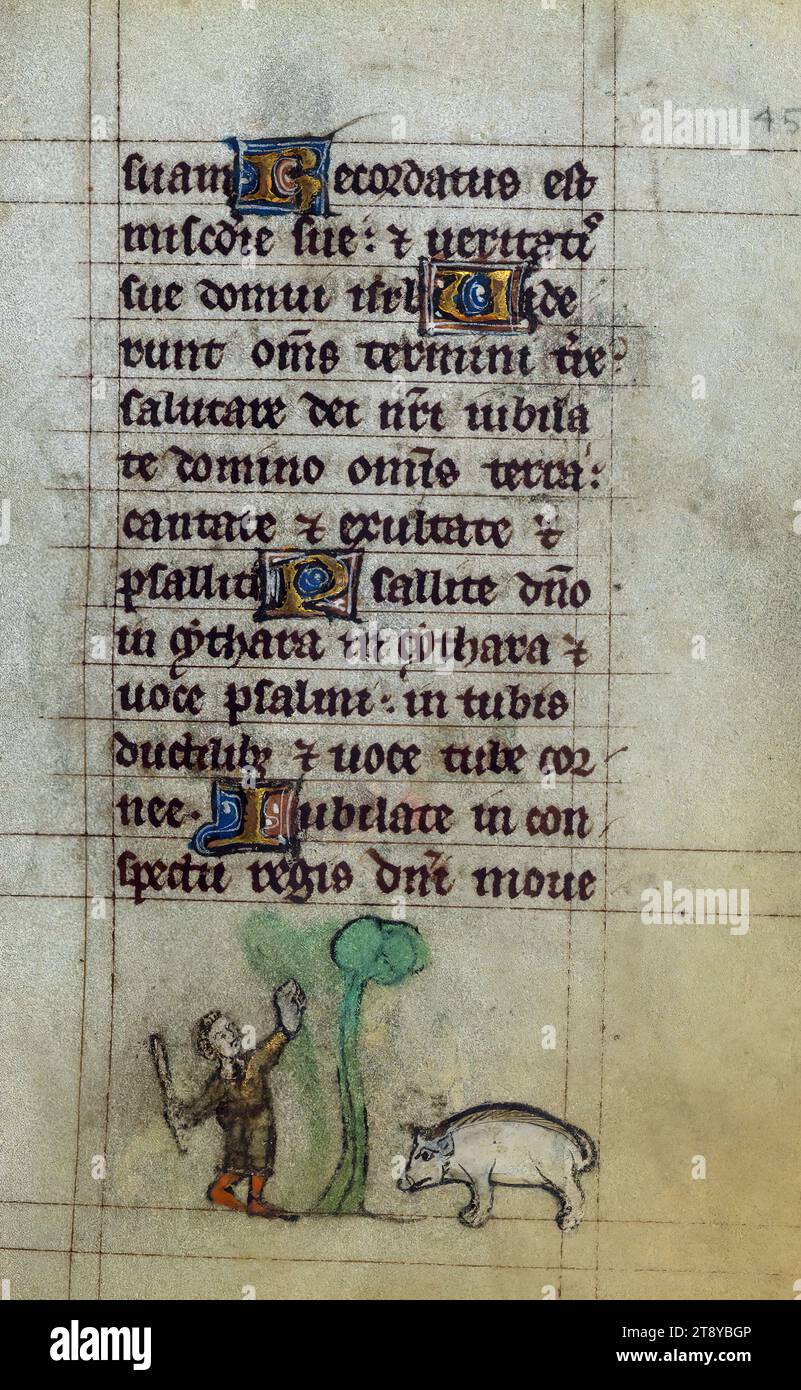 45
suam Recordatus est
miscdie sue: ⁊ ueritatis
sue domui isrl Uide
runt oms termini tre
salutare dei nri iubila
te domino omis terra:
cantate ⁊ exultate ⁊
psallite Psallite dno
in cythara in cythara ⁊
uoce psalmi: in tubis
ductilibꝫ ⁊ uoce tube cor
nee. Iubilate in con
spectu regis dni moue
alamy
alamy
a
a
a
alamy
Image ID: 2T8YBGP
www.alamy.com